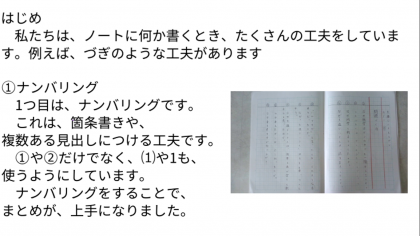 はじめ
　私たちは、ノートに何か書くとき、たくさんの工夫をしていま
す。例えば、づぎのような工夫があります
①ナンバリング
　1つ目は、ナンバリングです。
　これは、箇条書きや、
複数ある見出しにつける工夫です。
　①や②だけでなく、⑴や1も、
使うようにしています。
　ナンバリングをすることで、
まとめが、上手になりました。